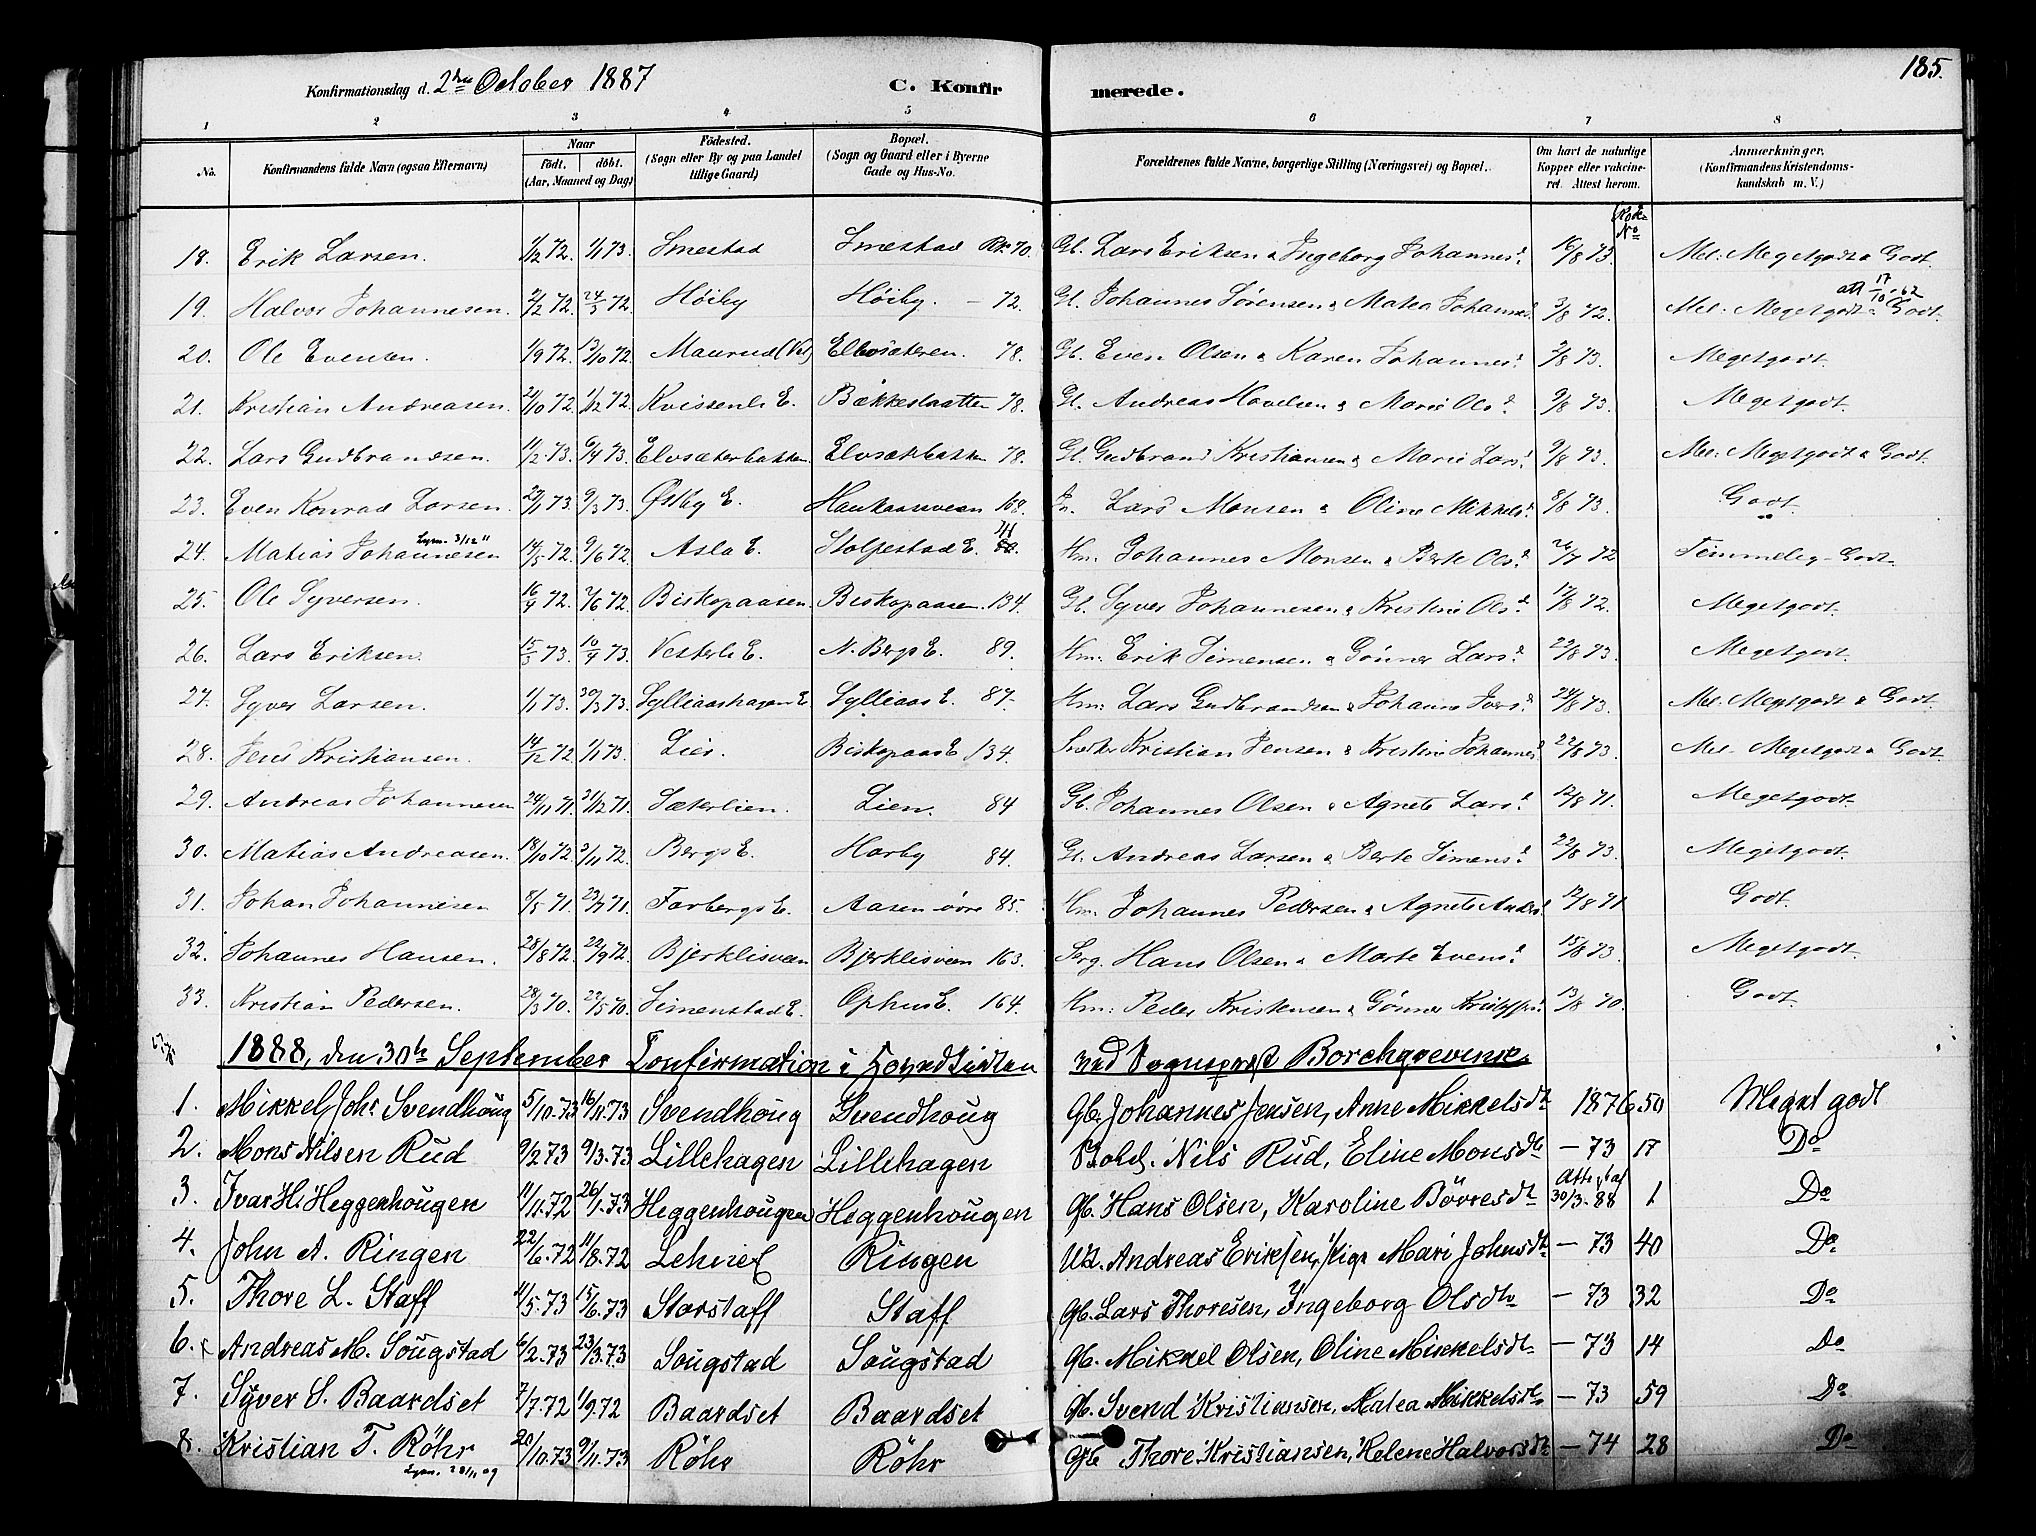 185.
Konfirmationsdag d. 2den October 1887 C. Konfirmerede.
1 2 3 4 5 6 7 8
No. Konfirmandens fulde Navn (ogsaa Efternavn) Naar født. døbt. (Aar, Maaned og Dag) Fødested. (Sogn eller By og paa Landet tillige Gaard) Bopæl. (Sogn og Gaard eller i Byerne Gade og Hus-No. Forældrenes fulde Navne, borgerlige Stilling (Næringsvei) og Bopæl. Om havt de naturlige Kopper eller vakcineret. Attest herom. Anmærkninger. (Konfirmandens Kristendomskundskab m. V.)
18. Erik Larsen. 1/12 72. 1/1 73. Smestad Smestad 70. Gb. Lars Eriksen & Ingeborg Johannesd. 16/8 73. Mel: Megetgodt & Godt.
19. Halvor Johannesen. 2/2 72. 24/3 72. Høiby Høiby. – 72. Gb. Johannes Sørensen & Matea Johannesd. 3/8 72. Mel: Megetgodt & Godt. att 17/10-62
20. Ole Evensen. 1/9 72. 13/10 72. Maurud Elvsæteren. 78. Gb. Even Olsen & Karen Johannesd. 9/8 73. Megetgodt.
21. Kristian Andreasen. 24/10 72. 1/12 72. Kvissenli E. Bækkeslaatten 78. Gb. Andreas Hovelsen & Marie Olsd. 9/8 73. Megetgodt.
22. Lars Gudbrandsen. 11/2 73. 6/4 73. Elvsæterbakken Elvsætbakken 78. Gb. Gudbrand Kristiansen & Marie Larsd. 9/8 73. Mel: Megetgodt & Godt.
23. Even Konrad Larsen. 27/1 73. 9/3 73. Østby E. 168. Lars Monsen & Oline Mikkelsd. 8/8 73. Godt.
24. Matias Johannesen Lysn. 3/12 11 14/5 72. 9/6 72. Asla E. Stolpestad E. Hm. Johannes Monsen & Berte Olsd. 26/7 72 Temmelig-Godt.
25. Ole Syversen. 16/4 72. 2/6 72. Biskopaasen. Biskopaasen. 134. Gb. Syver Johannesen & Kristine Olsd. 17/8 72. Megetgodt.
26. Lars Eriksen. 15/3 73. 10/4 73. Vesterli E. N. Bergs E. 89. Hm: Erik Simensen & Gønner Larsd. 22/8 73. Megetgodt.
27. Syver Larsen. 1/1 73. 30/3 73. Sylliaashagen E Sylliaas E. 87. Hm: Lars Gudbrandsen & Johanne Iversd. 22/8 73. Mel: Megetgodt & Godt.
28. Jens Kristiansen. 14/12 72. 1/1 73. Lier. Biskopaas E. 134. Snedker Kristian Jensen & Kristine Johannesd. 22/8 73. Mel: Megetgodt & Godt.
29. Andreas Johannesen 24/11 71. 31/12 71. Sæterlien. Lien. 84 Gb. Johannes Olsen & Agnete Larsd. 12/8 71. Megetgodt.
30. Matias Andreasen. 18/10 72. 3/11 72. Bergs E. Harby 84. Gb. Andreas Larsen & Berte Simensd. 22/8 73. Megetgodt.
31. Johan Johannesen 8/5 71. 23/7 71. Farbergs E. Aasen øvre 85. Hm. Johannes Pedersen & Agnete Andersd. 12/8 71 Godt.
32. Johannes Hansen. 28/8 72. 22/9 72. Bjerklisveen Bjerklisveen 163. Hans Olsen & Marte Evensd. 15/8 73. Megetgodt.
33. Kristian Pedersen. 28/3 70. 22/5 70. Simenstad E. Ophus E. 164. Hm: Peder Kristensen & Gønner 13/8 70. Godt.
1888, den 30te September Confirmation i Hovedkirken ved Sognepræst Borchgrevink.
1. Mikkel Johs Svendhoug 5/10.73 16/11.73 Svendhoug Svendhoug Gb. Johannes Jensen, Anne Mikkelsdtr 1876 50 Meget godt
2. Mons Nilsen Rud 9/2 73 9/3.73 Lillehagen Lillehagen Nils Rud, Eline Monsdtr – 73 17 Do
3. Ivar H. Heggenhougen 11/11.72 26/1.73 Heggenhougen Heggenhougen Gb. Hans Olsen, Karoline Børresdtr 30/3.88 1 Do
4. John A. Ringen 22/6.72 11/8.72 Ringen Andreas Eriksen, Pige Mari Johnsdtr – 73 40 Do
5. Thore L. Staff 11/5.73 15/6.73 Storstaff Staff Gb. Lars Thoresen, Ingeborg Olsdtr – 73 32 Do
6. Andreas M. Sougstad 6/2.73 23/3.73 Sougstad Sougstad Gb. Mikkel Olsen, Oline Mikkelsdtr – 73 14 Do
7. Syver S. Baardset 7/7.72 1/9.72 Baardset Baardset Gb. Svend Kristiansen, Matea Mikkelsdtr – 73 59 Do
8. Kristian T. Røhr Lysn. 28/11 09 20/10.73 9/11.73 Røhr Røhr Gb. Thore Kristiansen, Helene Halvorsdtr – 74 28 Do